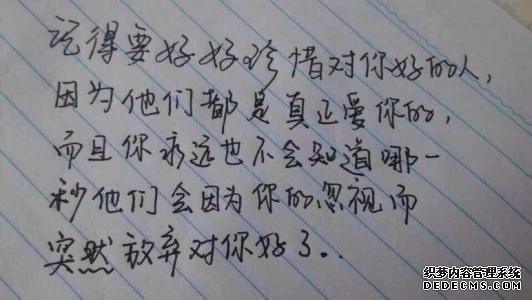 记得要好好珍惜对你好的人，
因为他们都是真正爱你的，
而且你永远也不会知道哪一
秒他们会因为你的忽视而
突然放弃对你好了..
织梦内容管理系统
DEDECMS.COM